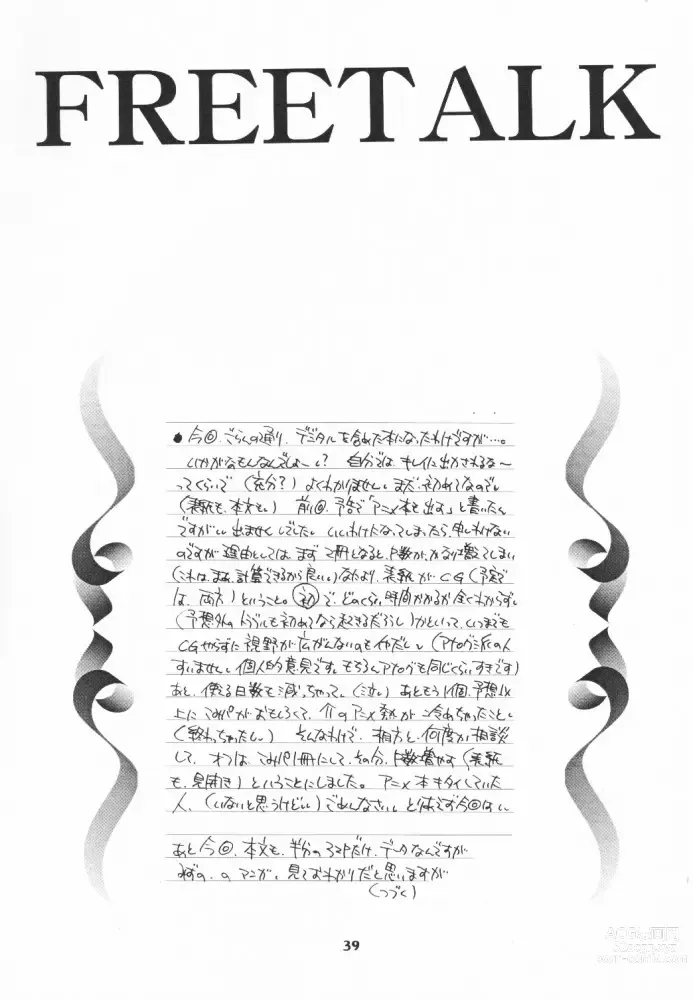 FREETALK
●今回、ごらんの通り、デジタルを含めた本になったわけですが…。
いかがなもんなんでしょーい? 自分では、キレイに出かされるな〜
ってくらいで(充分?)よくわかりません。まだ、初めてなので。
(表紙も、本文も。)前回、予告で「アニメ本を出す」と書いたん
ですがい、出ませんでした。いいわけになってしまったら、申しわけない
のですが理由としては、まず、2冊となると、枚数が、かなり増えてしまい
(これは、まあ、計算できるから良い。)なにより、表紙がCG(予定で
は、両方)ということ。初で、どのくらい時間かかるか全くわからず。
(予想外のトラブルも初めてなら起きるだろうし)かといって、いつまでも
CGやらずに視野が広がんないのもイヤだし。(アナログ派の人
すいません。個人的意見です。もちろんアナログも同じくらいすきです)
あと、使える日数も減っちゃって。(泣)あともう1個、予想以
上にこみパがおもしろくて、のアニメ熱が冷めちゃったこと。
(終わっちゃったし。)そんなわけで、相方と、何度か相談
して、オフは、こみパ1冊にして、その分、枚数増やす(表紙
も、見開き)ということにしました。アニメ本キタイしていた
人、(いないと思うけどい)ごめんなさい。とりあえず今回はい
あと今回、本文も、半分のマンガだけ、データなんですが
の、マンガ、見ておわかりだと思いますが
(つづく)
39